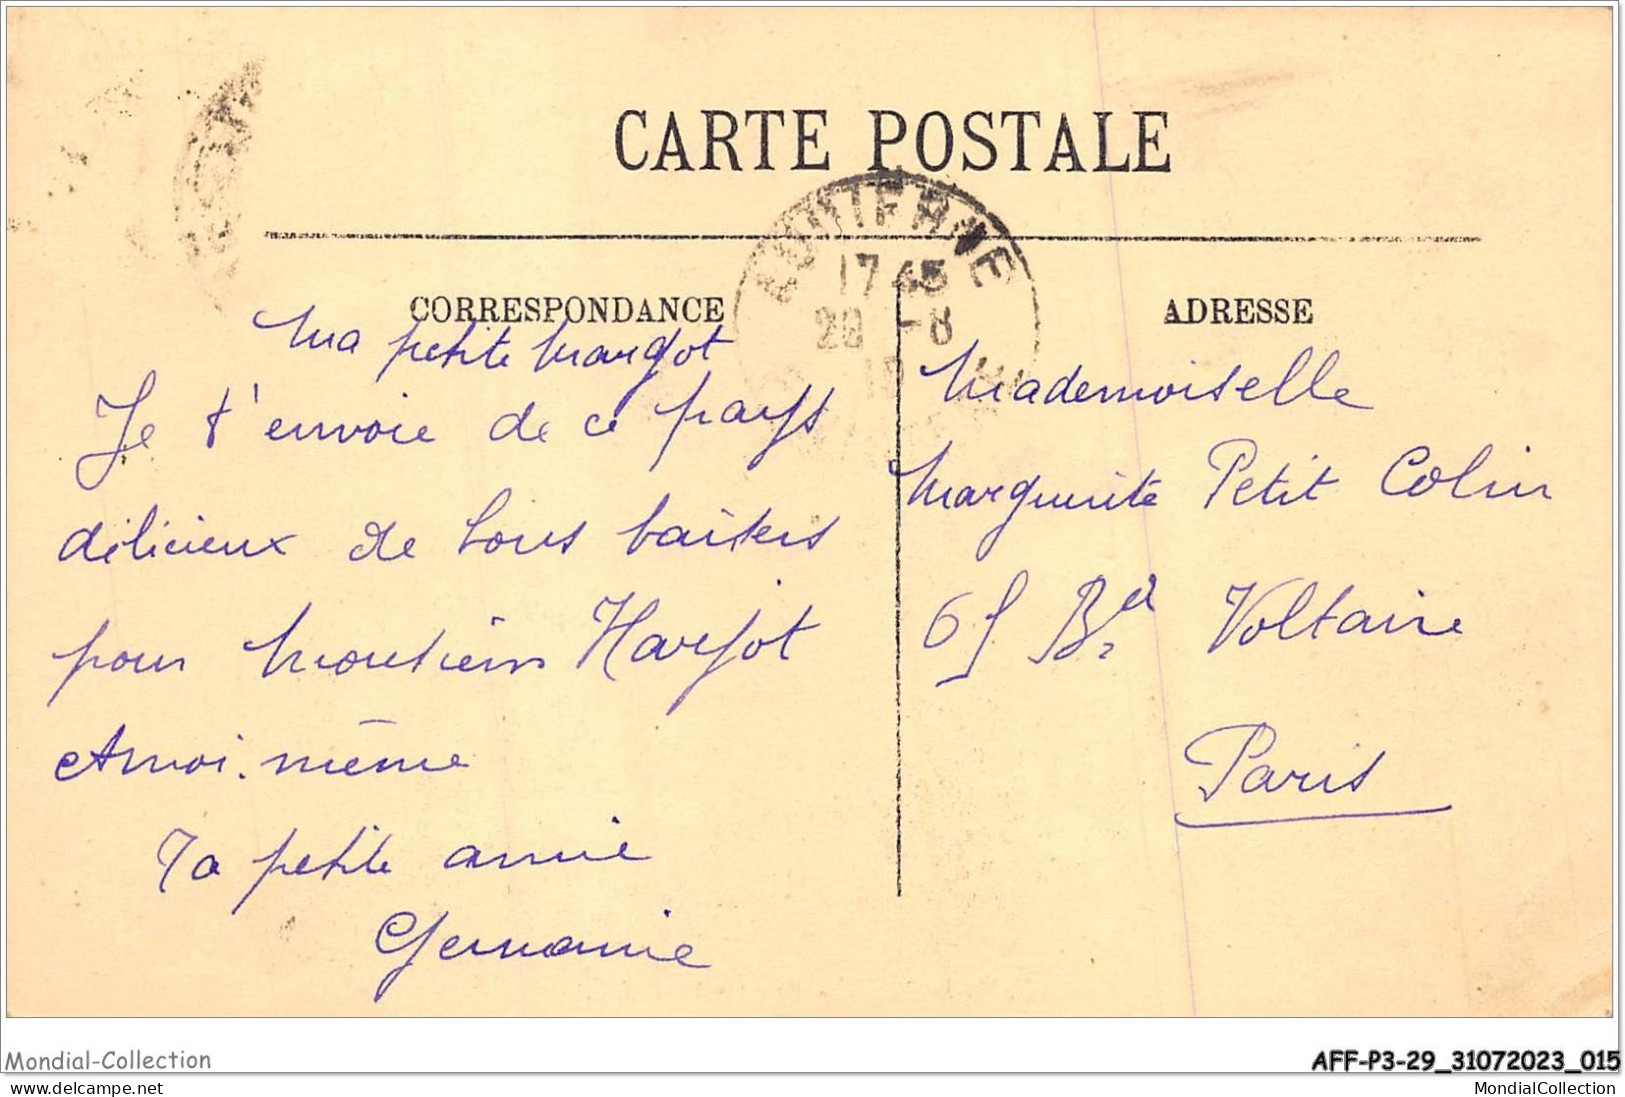 CARTE POSTALE
AUDIERNE
17 45
20 -8
CORRESPONDANCE
ADRESSE
Ma petite Margot
Je t'envoie de ce pays
délicieux de bons baisers
pour Harjot
et moi-même
Ta petite amie
Germaine
Mademoiselle
Marguerite Petit Colin
65 Bd Voltaire
Paris
Mondial-Collection
AFF-P3-29_31072023_015
www.delcampe.net
MondialCollection